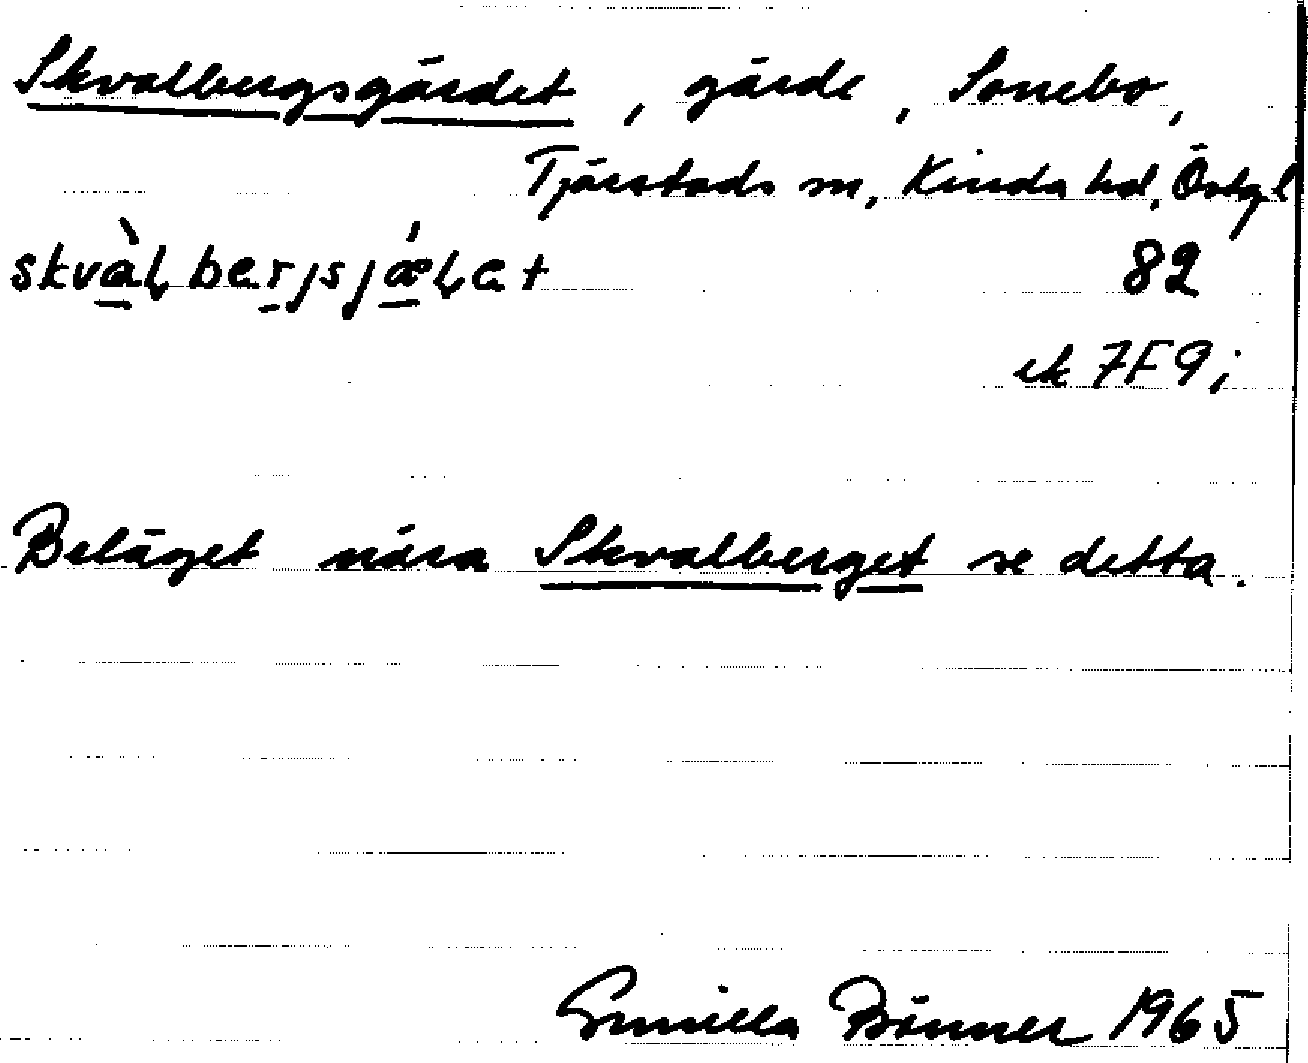 Skvalbergsgärdet, gärde, Sonebo,
Tjärstads sn, Kinda hd, Östgl
82
ek 7F9i
Beläget nära Skvalberget se detta.
Gunilla Bönner 1965